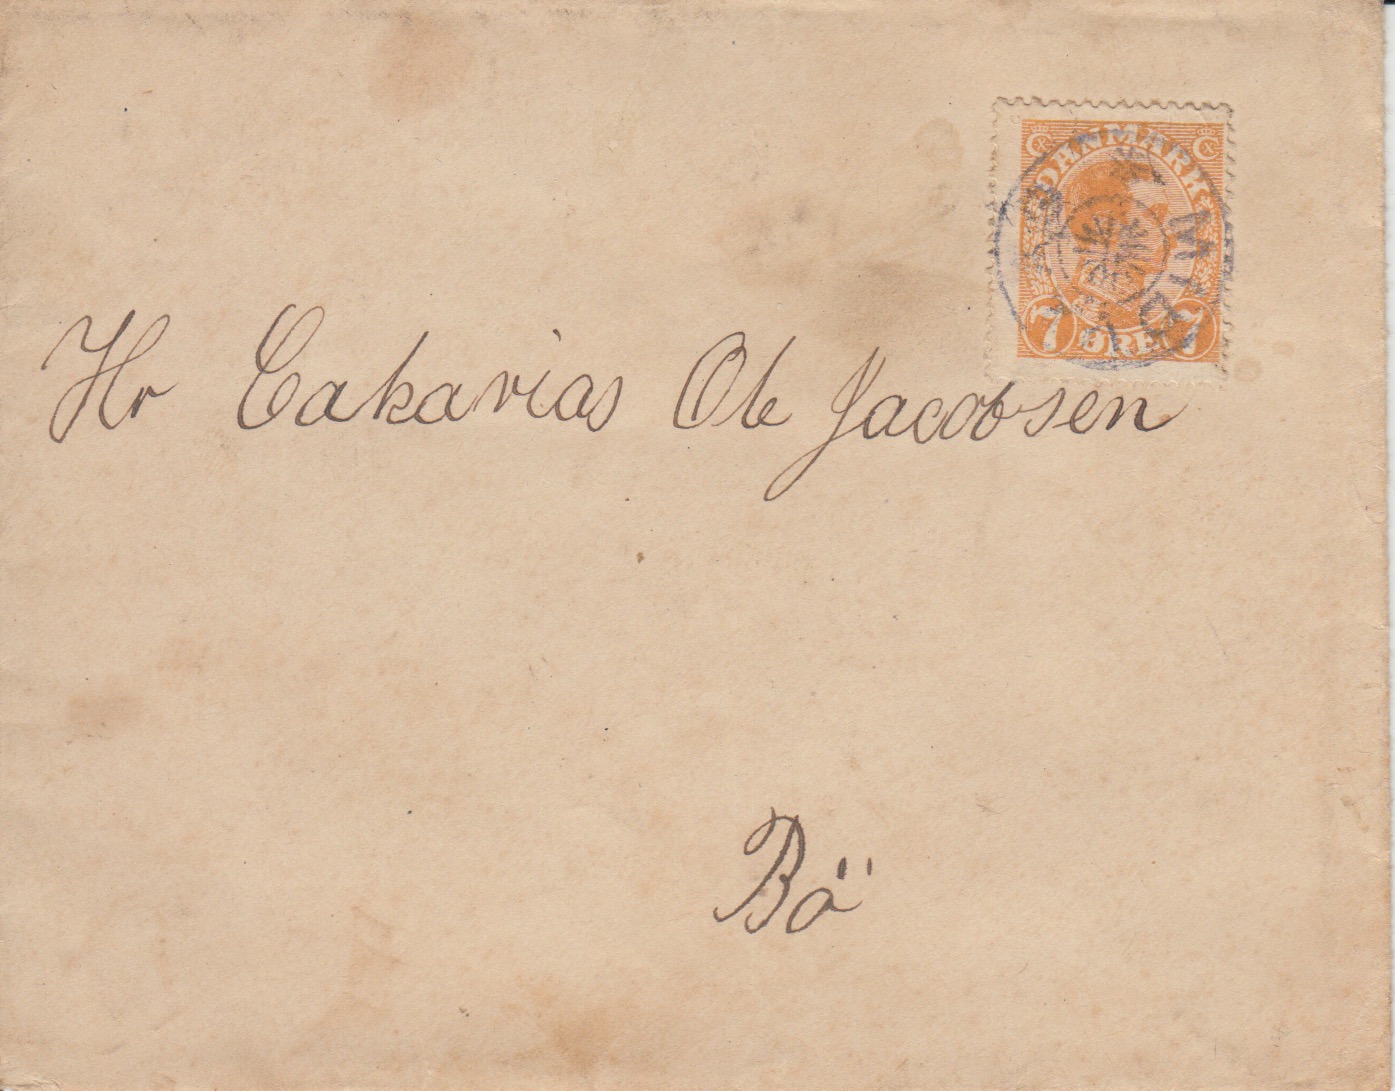 DANMARK
7 ØRE 7
Hr Cakarias Ole Jacobsen
Bö